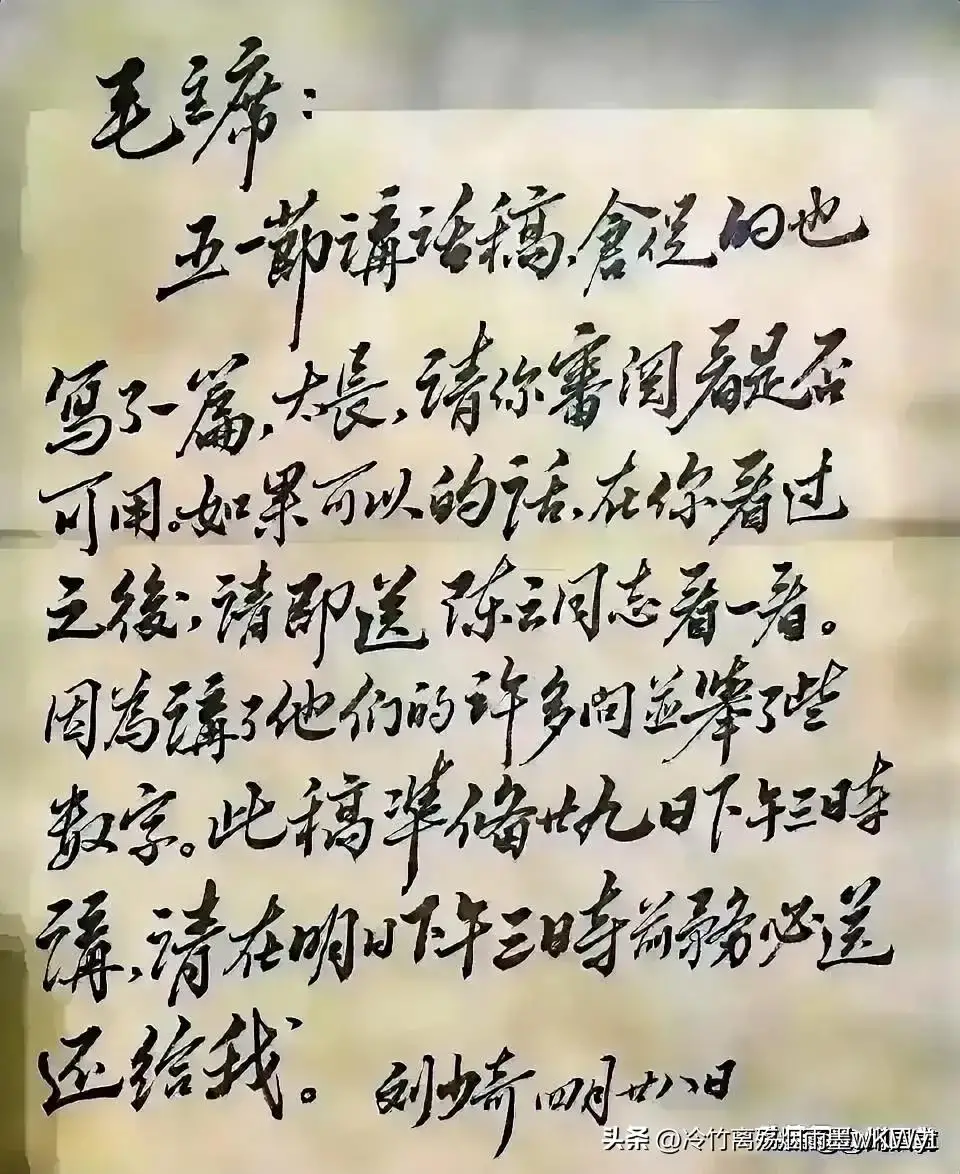 毛主席：
五一節講話稿，倉促的也
寫了一篇，太長，请你審阅看是否
可用。如果可以的话，在你看过
之後，請即送陈云同志看一看。
因為講了他们的许多问並举了些
数字。此稿準备廿九日下午三时
講，请在明日下午三时前务必送
还给我。刘少奇 四月廿八日
头条 @冷竹离殇烟雨墨